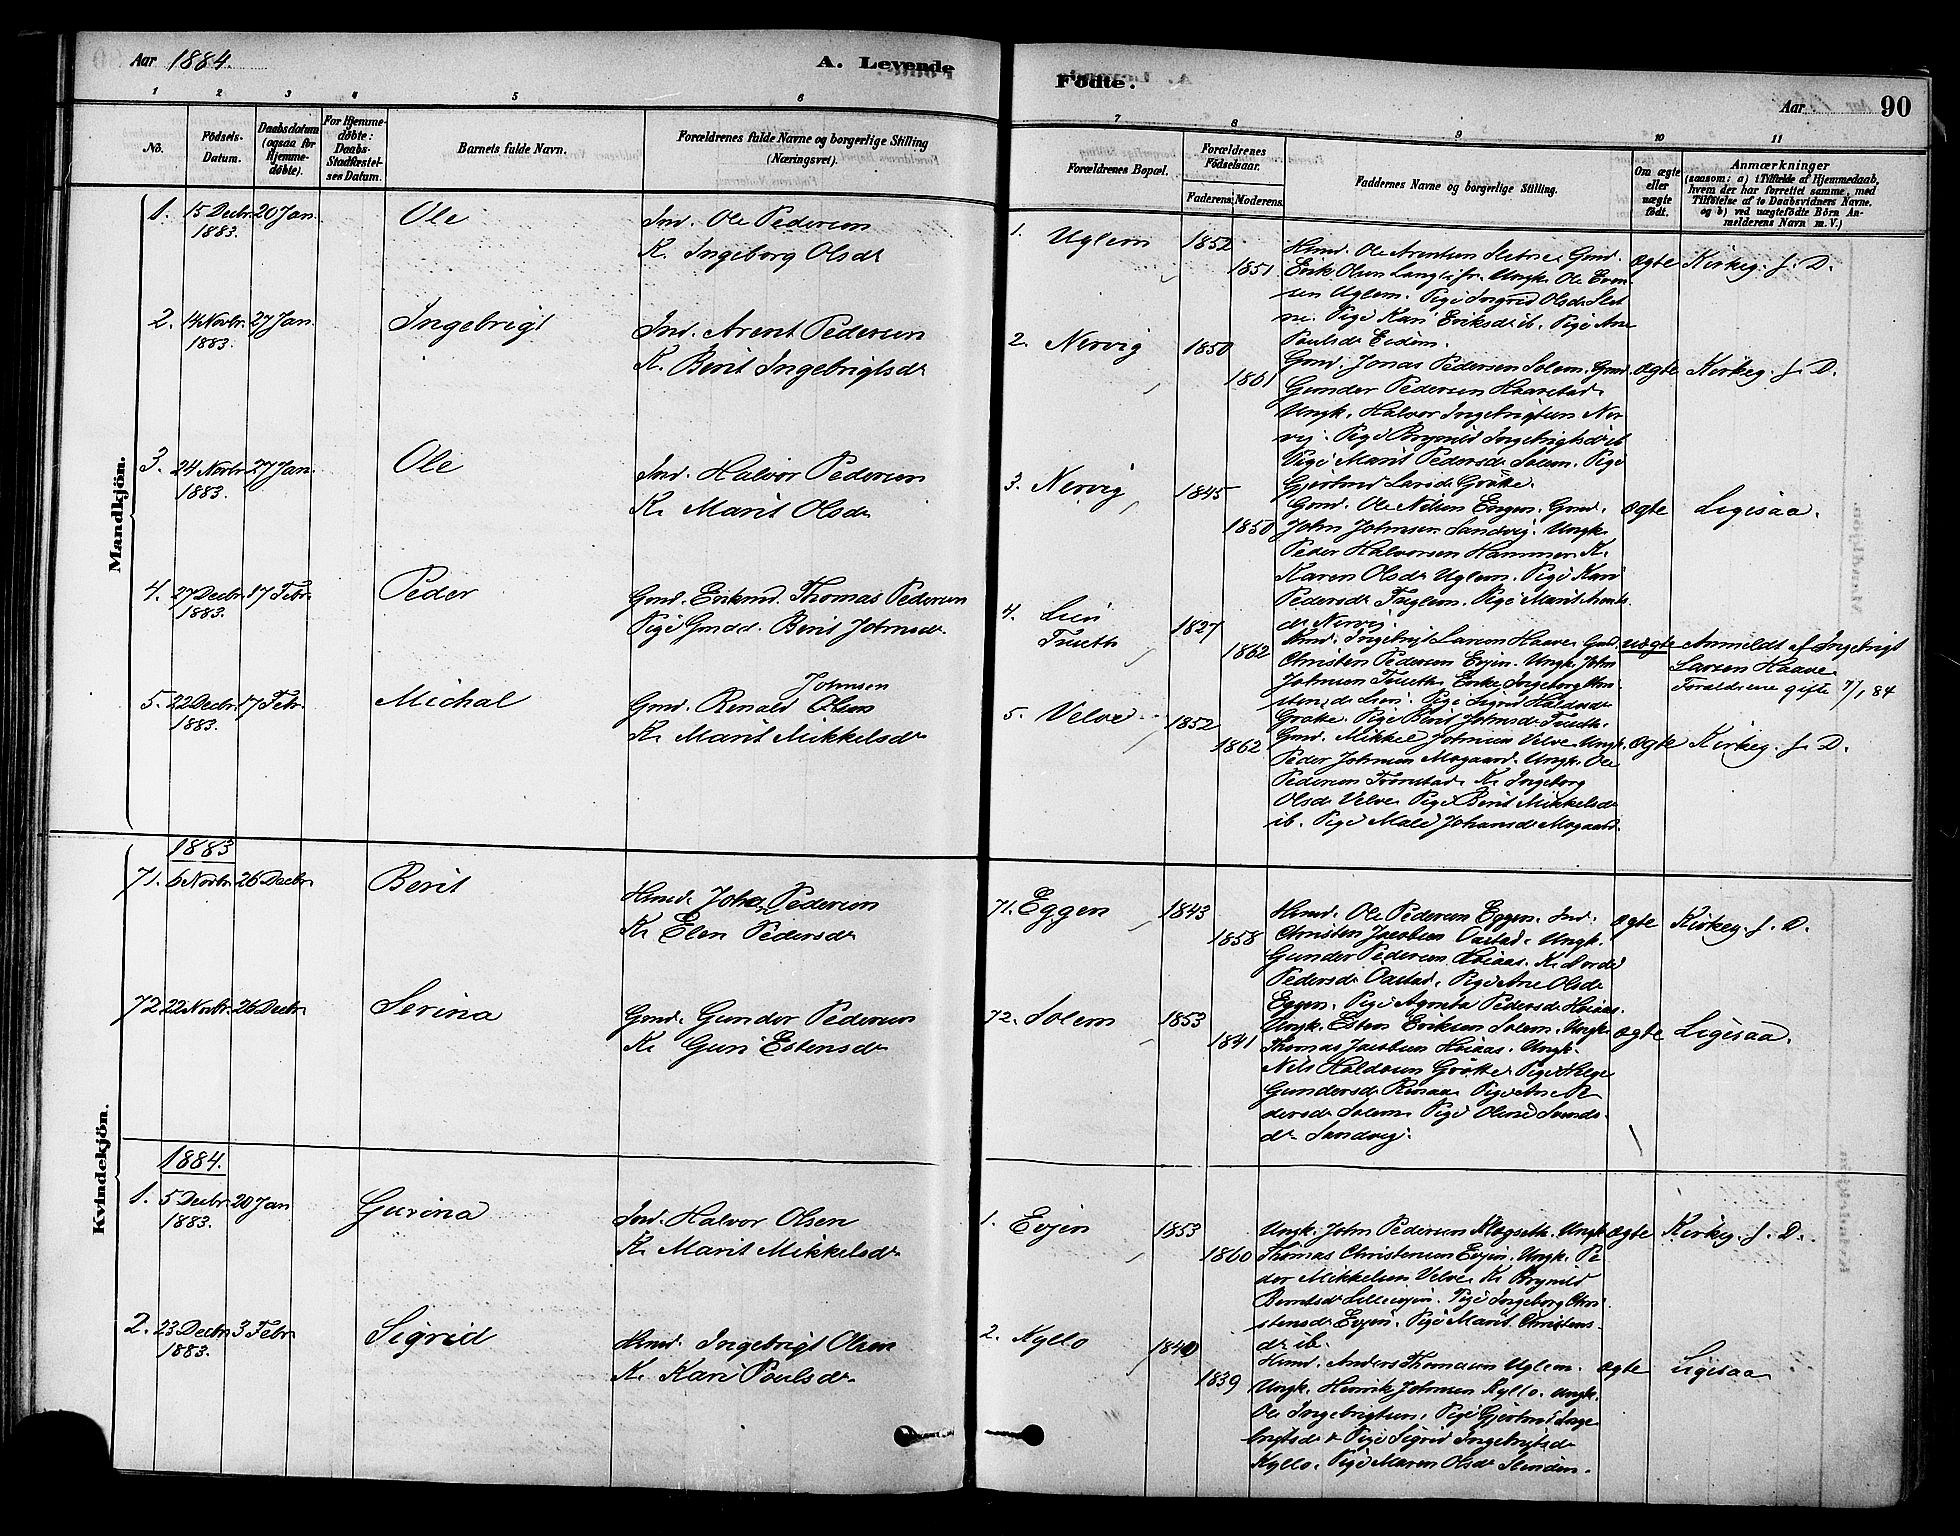 Aar 1884.
A. Levende
Födte.
Aar
90
1 2 3 4 5 6
7 8 9 10 11
No.
Födsels-Datum.
Daabsdatum (ogsaa for Hjemme-döbte).
For Hjemme-döbte: Daabs-Stadfæstel-ses Datum.
Barnets fulde Navn.
Forældrenes fulde Navne og borgerlige Stilling (Næringsvei).
Forældrenes Bopæl.
Forældrenes Födselsaar.
Faderens. Moderens.
Faddernes Navne og borgerlige Stilling.
Om ægte eller uægte födt.
Anmærkninger
(saasom: a) i Tilfælde af Hjemmedaab, hvem der har forrettet samme, med Tilföielse af to Daabsvidners Navne. og b) ved uægtefödte Börn Anmelderens Navn m. V.)
Mandkjön.
1. 15 Decbr. 1883. 20 Jan. Ole
Ind. Ole Pedersen
K. Ingeborg Olsdr
1. Uglem 1852 1851
Hmd. Ole Arentsen Sletne. Gmd.
Erik Olsen Langli fr. Ungk. Ole Even
sen Uglem. Pige Ingrid Olsdr Slet
ne. Pige Kari Eriksdr ib. Pige Ane
Paulsdr Eidem.
ægte Kirkeg. f. D.
2. 14 Novbr. 1883. 27 Jan. Ingebrigt
Ind. Arent Pedersen
K. Berit Ingebrigtsdr
2. Nervig 1850 1861
Gmd. Jonas Pedersen Solem. Gmd
Gunder Pedersen Haarstad.
Ungk. Halvor Ingebrigtsen Ner
vig. Pige Brynild Ingebrigtsdr ib
Pige Marit Pedersdr Solem. Pige
Gjertrud Larsdr Grötte.
ægte Kirkeg. f. D.
3. 24 Novbr. 1883. 27 Jan. Ole
Ind. Halvor Pedersen
K. Marit Olsdr
3. Nervig 1845 1850
Gmd. Ole Nilsen Engen. Gmd.
John Johnsen Sandvig. Ungk.
Peder Halvorsen Hammer. K.
Karen Olsdr Uglem. Pige Kari
Pedersdr Fuglem. Pige Marit Arnts
dr Nervig.
ægte Ligesaa.
4. 27 Decbr. 1883. 17 Febr. Peder
Gmd. Enkmd. Thomas Pedersen
Pige Gmdd. Berit Johnsdr
4. Lien
Tuseth 1827 1862
Kmd. Ingebrigt Larsen Haave. Gmd.
Christen Pedersen Evjen. Ungk. John
Johnsen Tuseth. Enke Ingeborg Chri
stensdr Lien. Pige Sigrid Haldosdr
Grötte. Pige Berit Johnsdr Tuseth.
uægte Anmeldt af Ingebrigt
Larsen Haave.
Forældrene gifte 7/1 84
5. 22 Decbr. 1883. 17 Febr. Michal
Johnsen
Gmd. Renald Olsen
K. Marit Mikkelsdr
5. Velve 1852 1862
Gmd. Mikkel Johnsen Velve. Ungk.
Peder Johnsen Mogaard. Ungk. Ole
Pedersen Tronstad. K. Ingeborg
Olsdr Velve. Pige Berit Mikkelsdr
ib. Pige Mali Johansdr Mogaard.
ægte Kirkeg. f. D.
Kvindekjön.
1883
71. 6 Novbr. 26 Decbr. Berit
Hmd. Johan Pedersen
K. Elen Pedersdr
71. Eggen 1843 1858
Hmd. Ole Pedersen Eggen. Ind.
Christen Jacobsen Aastad. Ungk.
Gunder Pedersen Hoiaas. K. Dordi
Pedersdr Aastad. Pige Ane Olsdr
Eggen. Pige Agneta Pedersdr Hoiaas.
ægte Kirkeg. f. D.
72. 22 Novbr. 26 Decbr. Serina
Gmd. Gunder Pedersen
K. Guri Estensdr
72. Solem 1853 1841
Ungk. Esten Eriksen Solem. Ungk.
Thomas Jacobsen Hoiaas. Ungk.
Nils Haldosen Grötte. Pige Helge
Gundersdr Renaa. Pige Ane P
dersdr Solem. Pige Oline Svends
dr Sandvig.
ægte Ligesaa.
1884.
1. 5 Decbr. 1883. 20 Jan Gurina
Ind. Halvor Olsen
K. Marit Mikkelsdr
1. Evjen 1853 1860
Ungk. John Pedersen Mogseth. Ungk
Thomas Christensen Evjen. Ungk. Pe
der Mikkelsen Velve. K. Brynild
Berntsdr Lilleevjen. Pige Ingeborg Chri
stensdr Evjen. Pige Marit Christens
dr ib.
ægte Kirkeg. f. D.
2. 23 Decbr. 1883. 3 Febr. Sigrid
Hmd. Ingebrigt Olsen
K. Kari Poulsdr
2. Kyllo 1840 1839
Hmd. Anders Thomasen Uglem.
Ungk. Henrik Johnsen Kyllo. Ungk.
Ole Ingebrigtsen, Pige Gjertrud Inge
brigtsdr & Pige Sigrid Ingebrigtsdr
Kyllo. Pige Maren Olsdr Slinden.
ægte Ligesaa